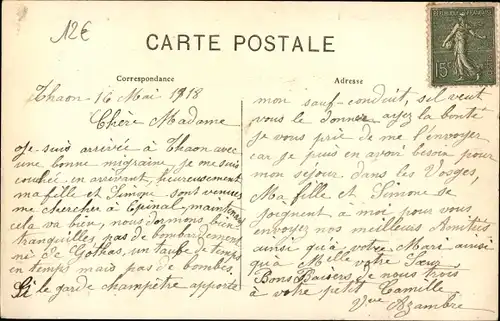 12€
CARTE POSTALE
Correspondance
Adresse
15
Thaon - 16 Mai 1918
Chère Madame
Je suis arrivée à Thaon avec
une bonne migraine, je me suis
couchée en arrivant, heureusement
ma fille et Simone sont venues
me chercher à Epinal, maintenant
cela va bien, nous dormons bien
tranquilles, pas de bombardement
ni de Gothas, un taube de temps
en temps mais pas de bombes.
Si le garde champêtre apporte
mon sauf-conduit, s'il veut
vous le donner ayez la bonté
je vous prie de me l'envoyer
car je puis en avoir besoin pour
mon séjour dans les Vosges,
Ma fille et Simone se
joignent à moi pour vous
envoyez nos meilleurs Amitiés
ainsi qu'à votre Mari ainsi
qu'à Melle votre Sœur
Bons Baisers de nous trois
à votre petit Camille
Vve Azambre